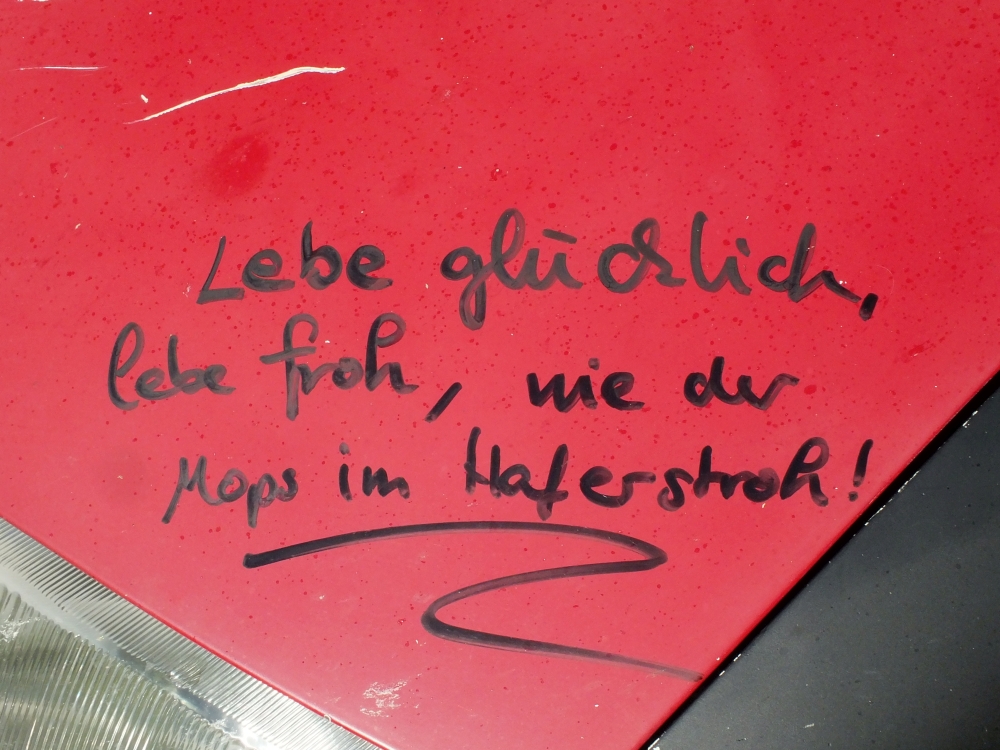 Lebe glücklich,
lebe froh, wie der
Mops im Haferstroh!